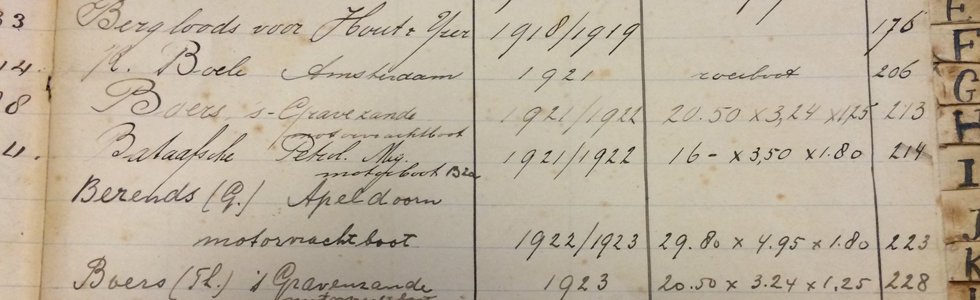 33 Bergloods voor Hout & Yzer 1918/1919 176
14. K. Boele Amsterdam 1921 roeiboot 206
8 Boers, 's-Gravezande 1921/1922 20.50 x 3,24 x 1,25 213
motorvrachtboot
4. Bataafsche Petrol. Mij. 1921/1922 16- x 3,50 x 1.80 214
motorboot
Berends (G.) Apeldoorn
motorvrachtboot 1922/1923 29.80 x 4.95 x 1.80 223
Boers (Th.) 's Gravenzande 1923 20.50 x 3.24 x 1,25 228
F
G
H
I
J
K